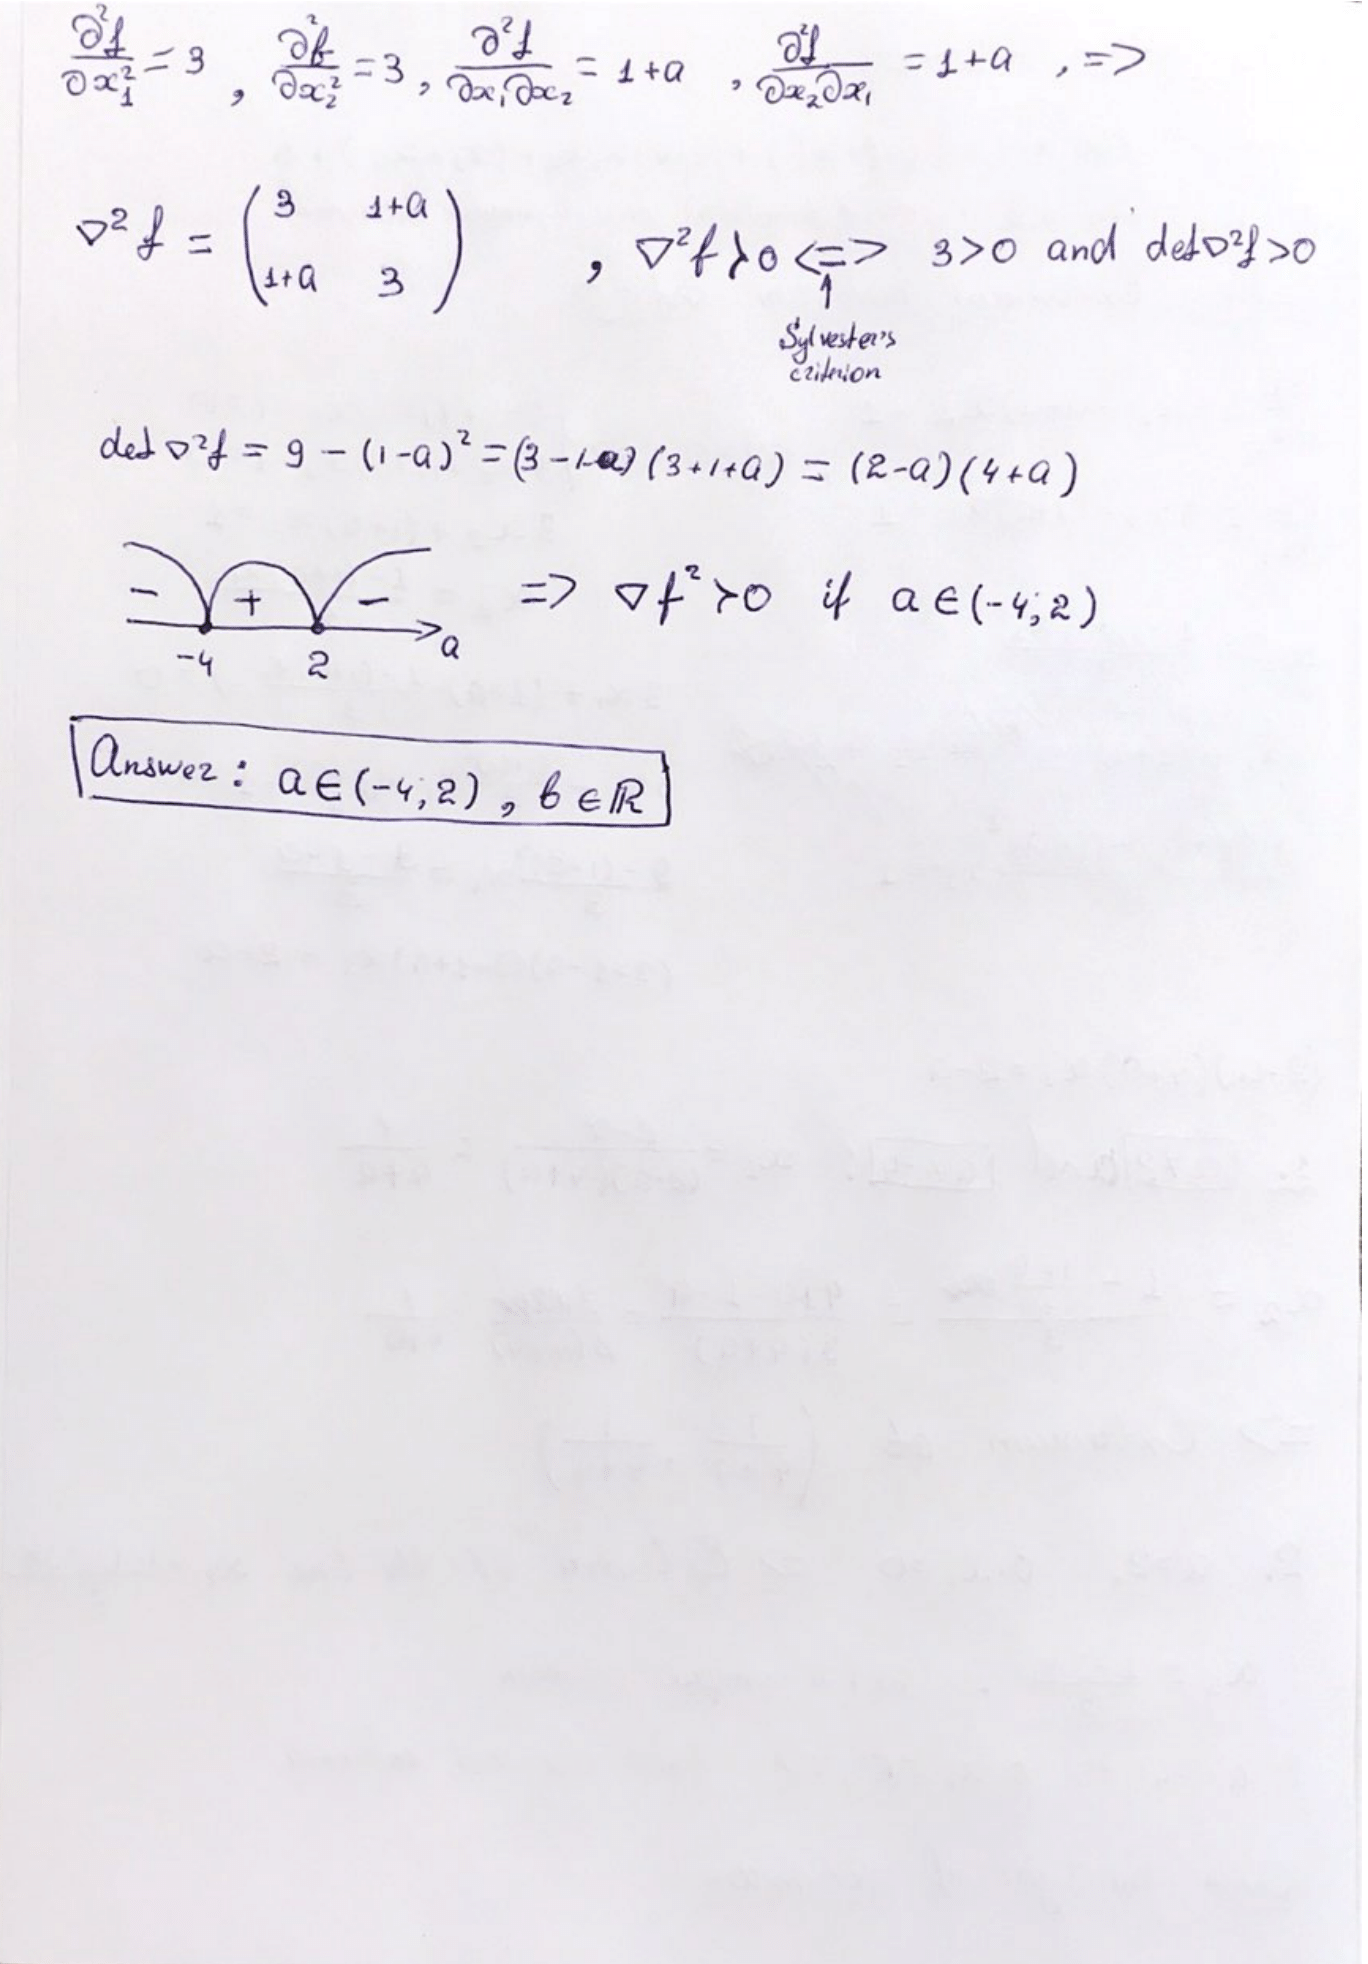 ∂²f/∂x₁² = 3 , ∂²f/∂x₂² = 3 , ∂²f/∂x₁∂x₂ = 1+a , ∂²f/∂x₂∂x₁ = 1+a , =>
∇²f = (3 1+a
1+a 3) , ∇²f ≻ 0 <=> 3>0 and det∇²f>0
↑
Sylvester's
criterion
det ∇²f = 9 - (1-a)² = (3-1-a)(3+1+a) = (2-a)(4+a)
- + - => ∇f² ≻ 0 if a ∈ (-4; 2)
-4 2 a
Answer: a ∈ (-4; 2) , b ∈ ℝ